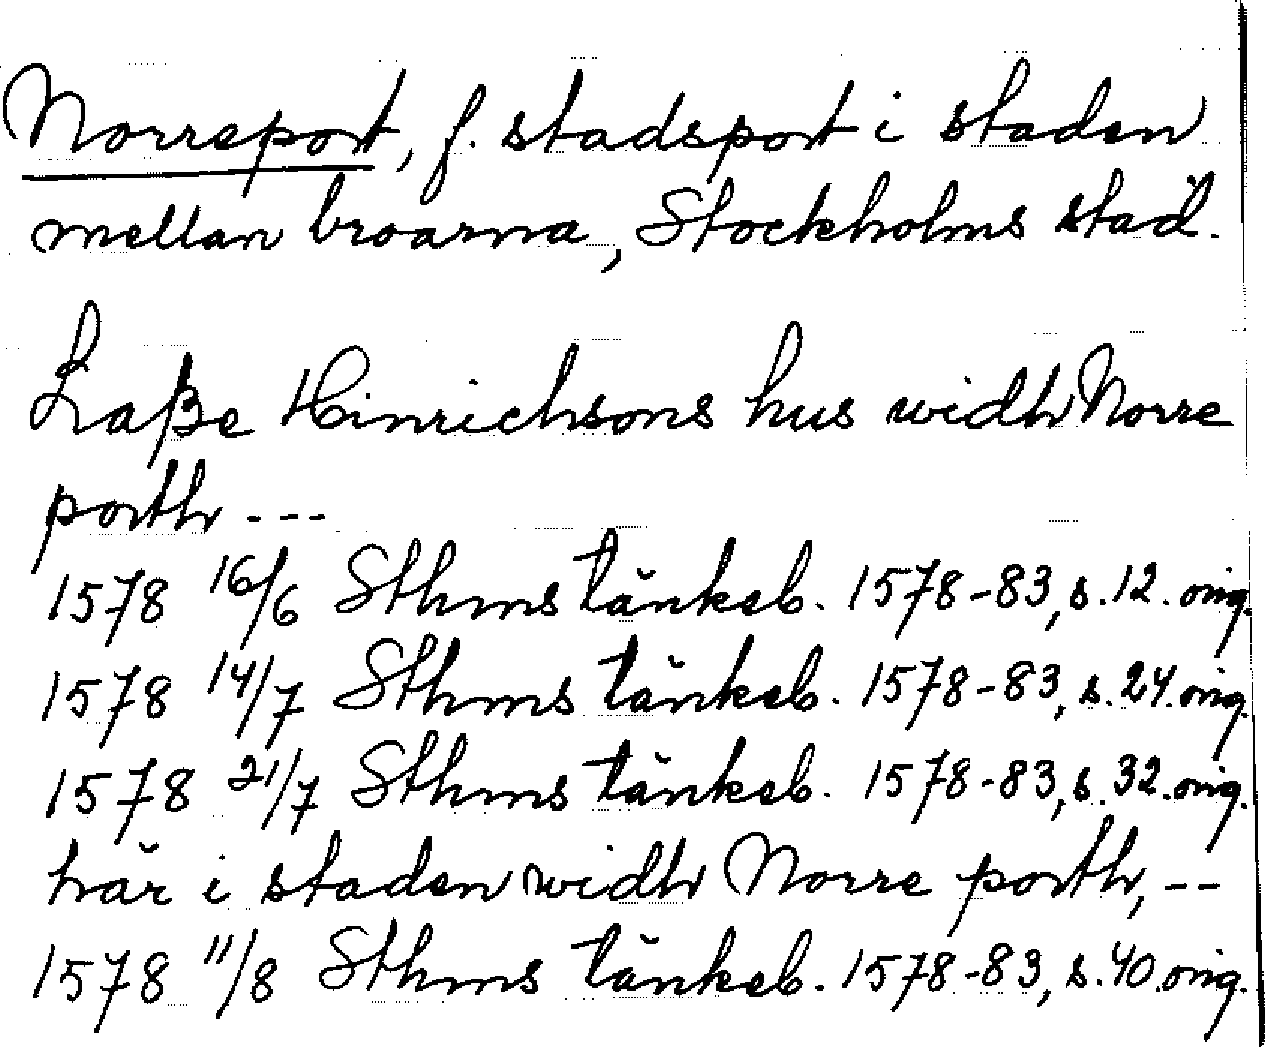 Norreport, f. stadsport i staden
mellan broarna, Stockholms stad.
Laße Hinrichsons hus widh Norre
porth ---
1578 16/6 Sthms tänkeb. 1578-83, s. 12. orig.
1578 14/7 Sthms tänkeb. 1578-83, s. 24. orig.
1578 21/7 Sthms tänkeb. 1578-83, s. 32. orig.
här i staden widh Norre porth, --
1578 11/8 Sthms tänkeb. 1578-83, s. 40. orig.